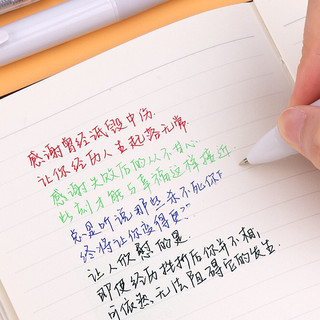 感谢曾经诋毁中伤.
让你经历人生起落无常.
感谢失败后的从不甘心
此刻才能与幸福这样接近.
总是听说那些杀不死你
终将让你变得更
让人欣慰的是.
即便经历挫折后你
可依然无法阻碍它的发生.